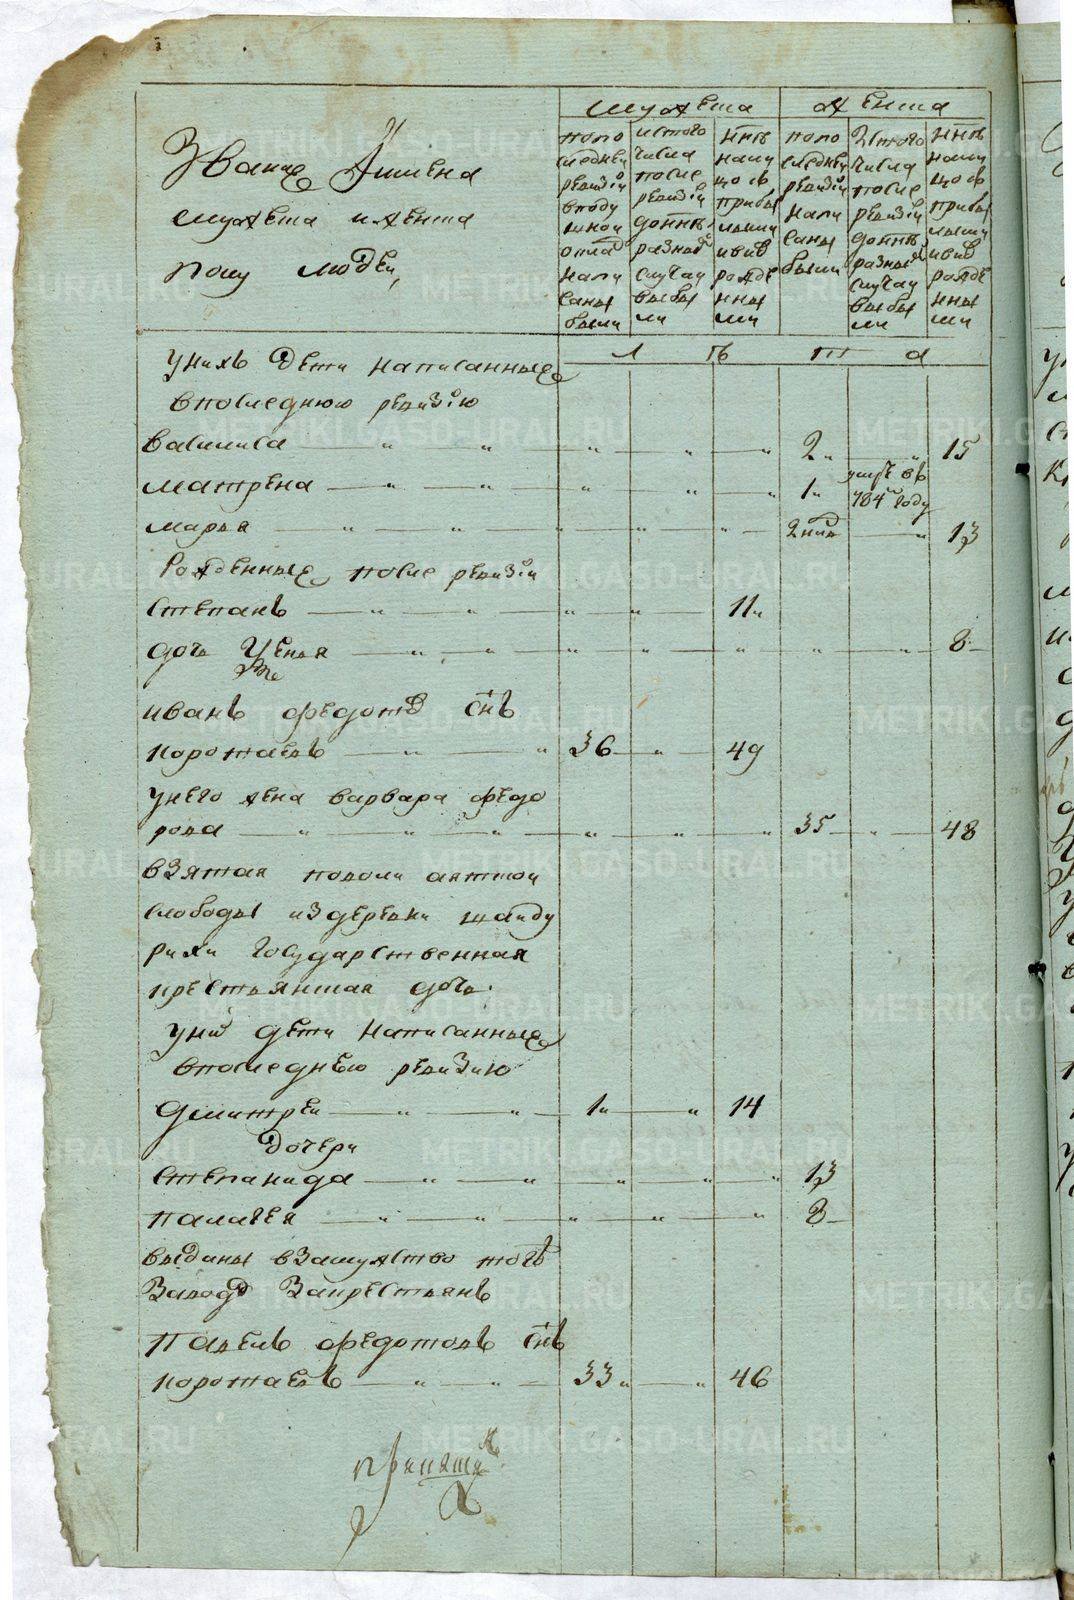 Званiе Iимена
мужеска и женска
полу людей,
мужеска
женска
попо
следней
ревизiи
вподу
шной
оклад
напи
саны
были
исного
числа
после
ревизiи
донне
разны
случаи
выбы
ли
ННѢ
нали
що съ
прибы
лыми
ивно
рожде
нны
ми
попо
следней
ревизiи
напи
саны
были
Исного
числа
после
ревизiи
донне
разны
случаи
выбы
ли
ННѢ
нали
що съ
прибы
лыми
ивно
рожде
нны
ми
л ѣ т а
унихъ дети написанные
впоследнюю ревизiю
василиса 2 15
матрена 1 умре въ 784м году
марья 2 нед 13
Рожденные после ревизiи
степанъ 11
дочь Ксенья 8
иванъ федотов снъ
коротаевъ 36 49
унего жена варвара федо
рова 35 48
взятая
слободы издеревни
государственная
крестьянская дочь
уних дети написанные
впоследнею ревизию
дмитрей 1 14
дочери
степанида 13
палагея 8
выданы взамужство тогъ
Завода Закрестьянъ
Павелъ федотовъ снъ
коротаевъ 33 46